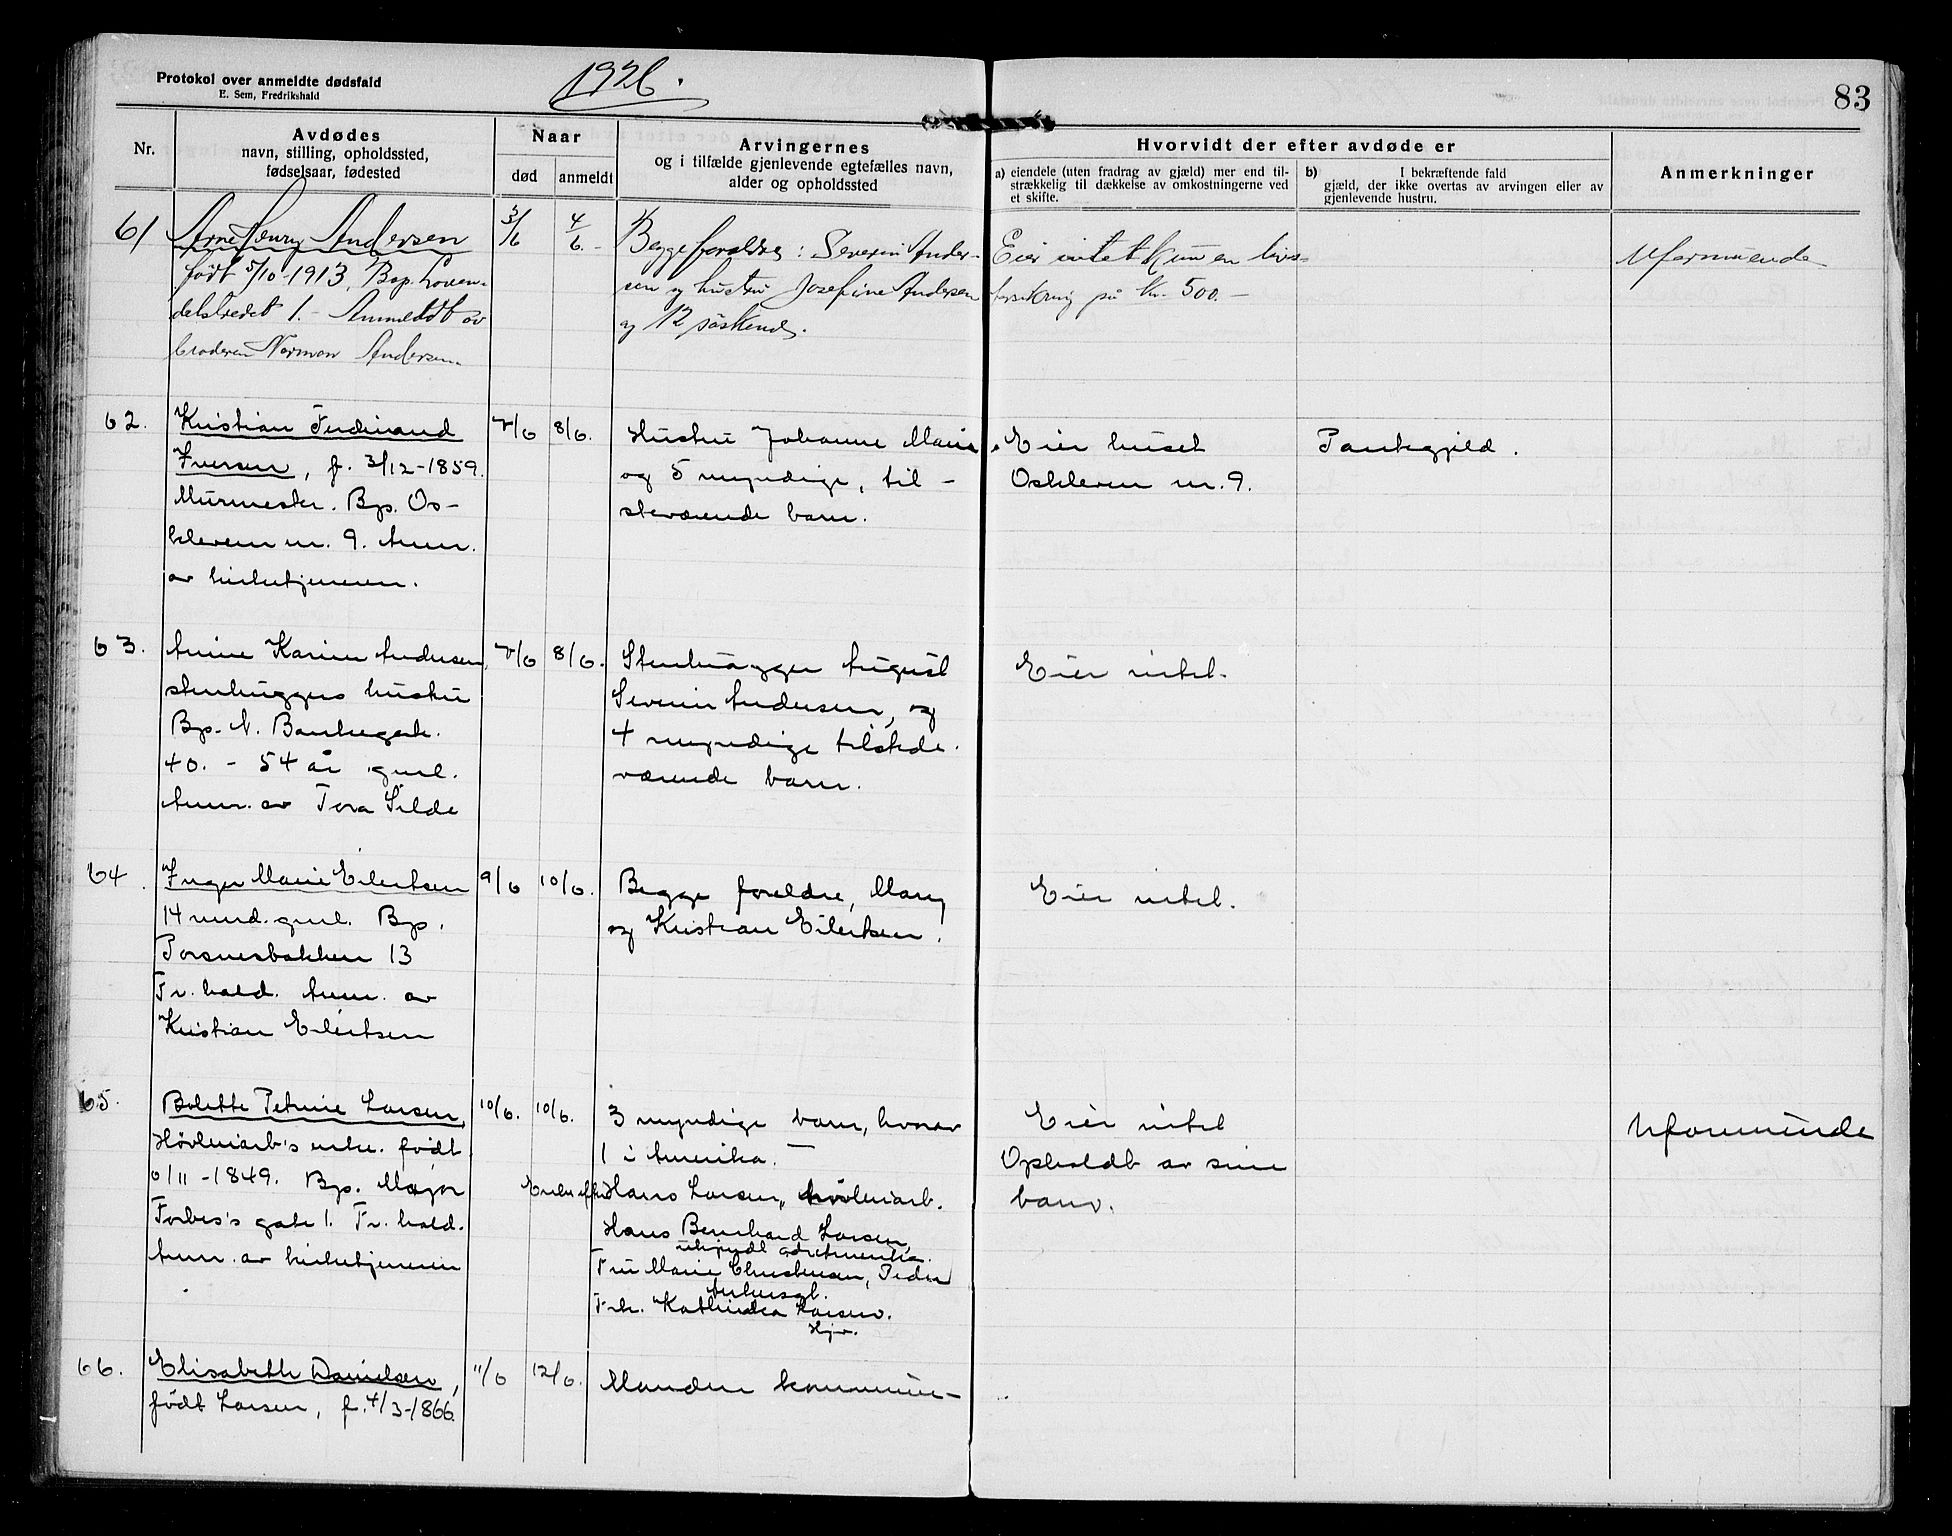 Protokol over anmeldte dødsfald
E. Sem, Fredrikshald
1926.
83
Nr.
Avdødes
navn, stilling, opholdssted,
fødselsaar, fødested
Naar
død
anmeldt
Arvingernes
og i tilfælde gjenlevende egtefælles navn,
alder og opholdssted
Hvorvidt der efter avdøde er
a) eiendele (uten fradrag av gjæld) mer end til-
strækkelig til dækkelse av omkostningerne ved
et skifte.
b) I bekræftende fald
gjæld, der ikke overtas av arvingen eller av
gjenlevende hustru.
Anmerkninger
61
Arne Henry Andersen
født 5/10-1913, Bop. Loven-
delstredet 1. - Anmeldt av
broderen Norman Andersen.
3/6
4/6.-
Begge foreldre: Severin Ander-
sen og hustru Josefine Andersen
og 12 søskende.
Eier intet kun en livs-
forsikring på kr. 500.-
Uformuende
62.
Kristian Ferdinand
Iversen, f. 3/12-1859.
Murmester. Bp. Os-
kleven nr. 9. Anm.
av kirketjeneren.
7/6
8/6.
Hustru Johanne Marie
og 5 myndige, til-
steværende barn.
Eier huset
Oskleven nr. 9.
Pantegjeld.
63.
Anine Karine Andersen,
stenhuggers hustru
Bp. N. Bankegate.
40. - 54 år gml.
Anm. av Tora Silde
7/6
8/6.
Stenhugger August
Severin Andersen, og
4 myndige tilstede-
værende barn.
Eier intet.
64.
Inger Marie Eilertsen
14 mnd. gml. Bp.
Porsnesbakken 13
Fr.hald. Anm. av
Kristian Eilertsen
9/6
10/6.
Begge foreldre, Mary
og Kristian Eilertsen.
Eier intet.
65.
Bolette Petrine Larsen,
Høvleriarb's enke. født
6/11-1849. Bp. Major
Forbes's gate 1. Fr.hald.
Anm. av kirketjeneren
10/6.
10/6.
3 myndige barn, hvorav
1 i Amerika. —
Enke efter Hans Larsen, høvleriarb.
Hans Bernhard Larsen,
ukjendt adr. Amerika.
Fru Marie Christensen, Peder
Ankersgt.
Frk. Kathinka Larsen.
Hjv.
Eier intet
Opholdt av sine
barn.
Uformuende
66.
Elisabeth Danielsen,
født Larsen, f. 4/3-1866.
11/6
12/6.
Manden kommune-